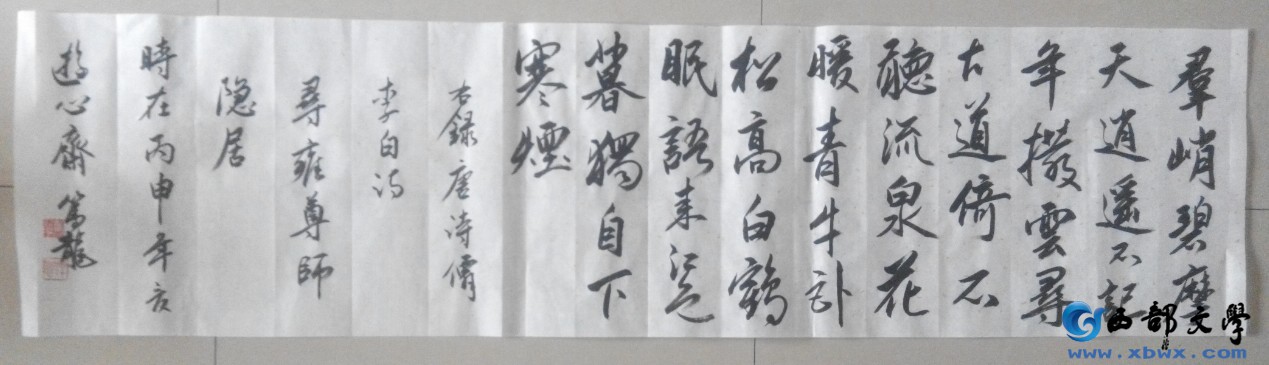 羣峭碧摩
天逍遥不記
年撥雲尋
古道倚石
聽流泉花
暖青牛卧
松高白鶴
眠語来江色
暮獨自下
寒煙
右録唐诗僊
李白诗
尋雍尊師
隐居
時在丙申年
遊心齋龍
西部文學
www.xbwx.com